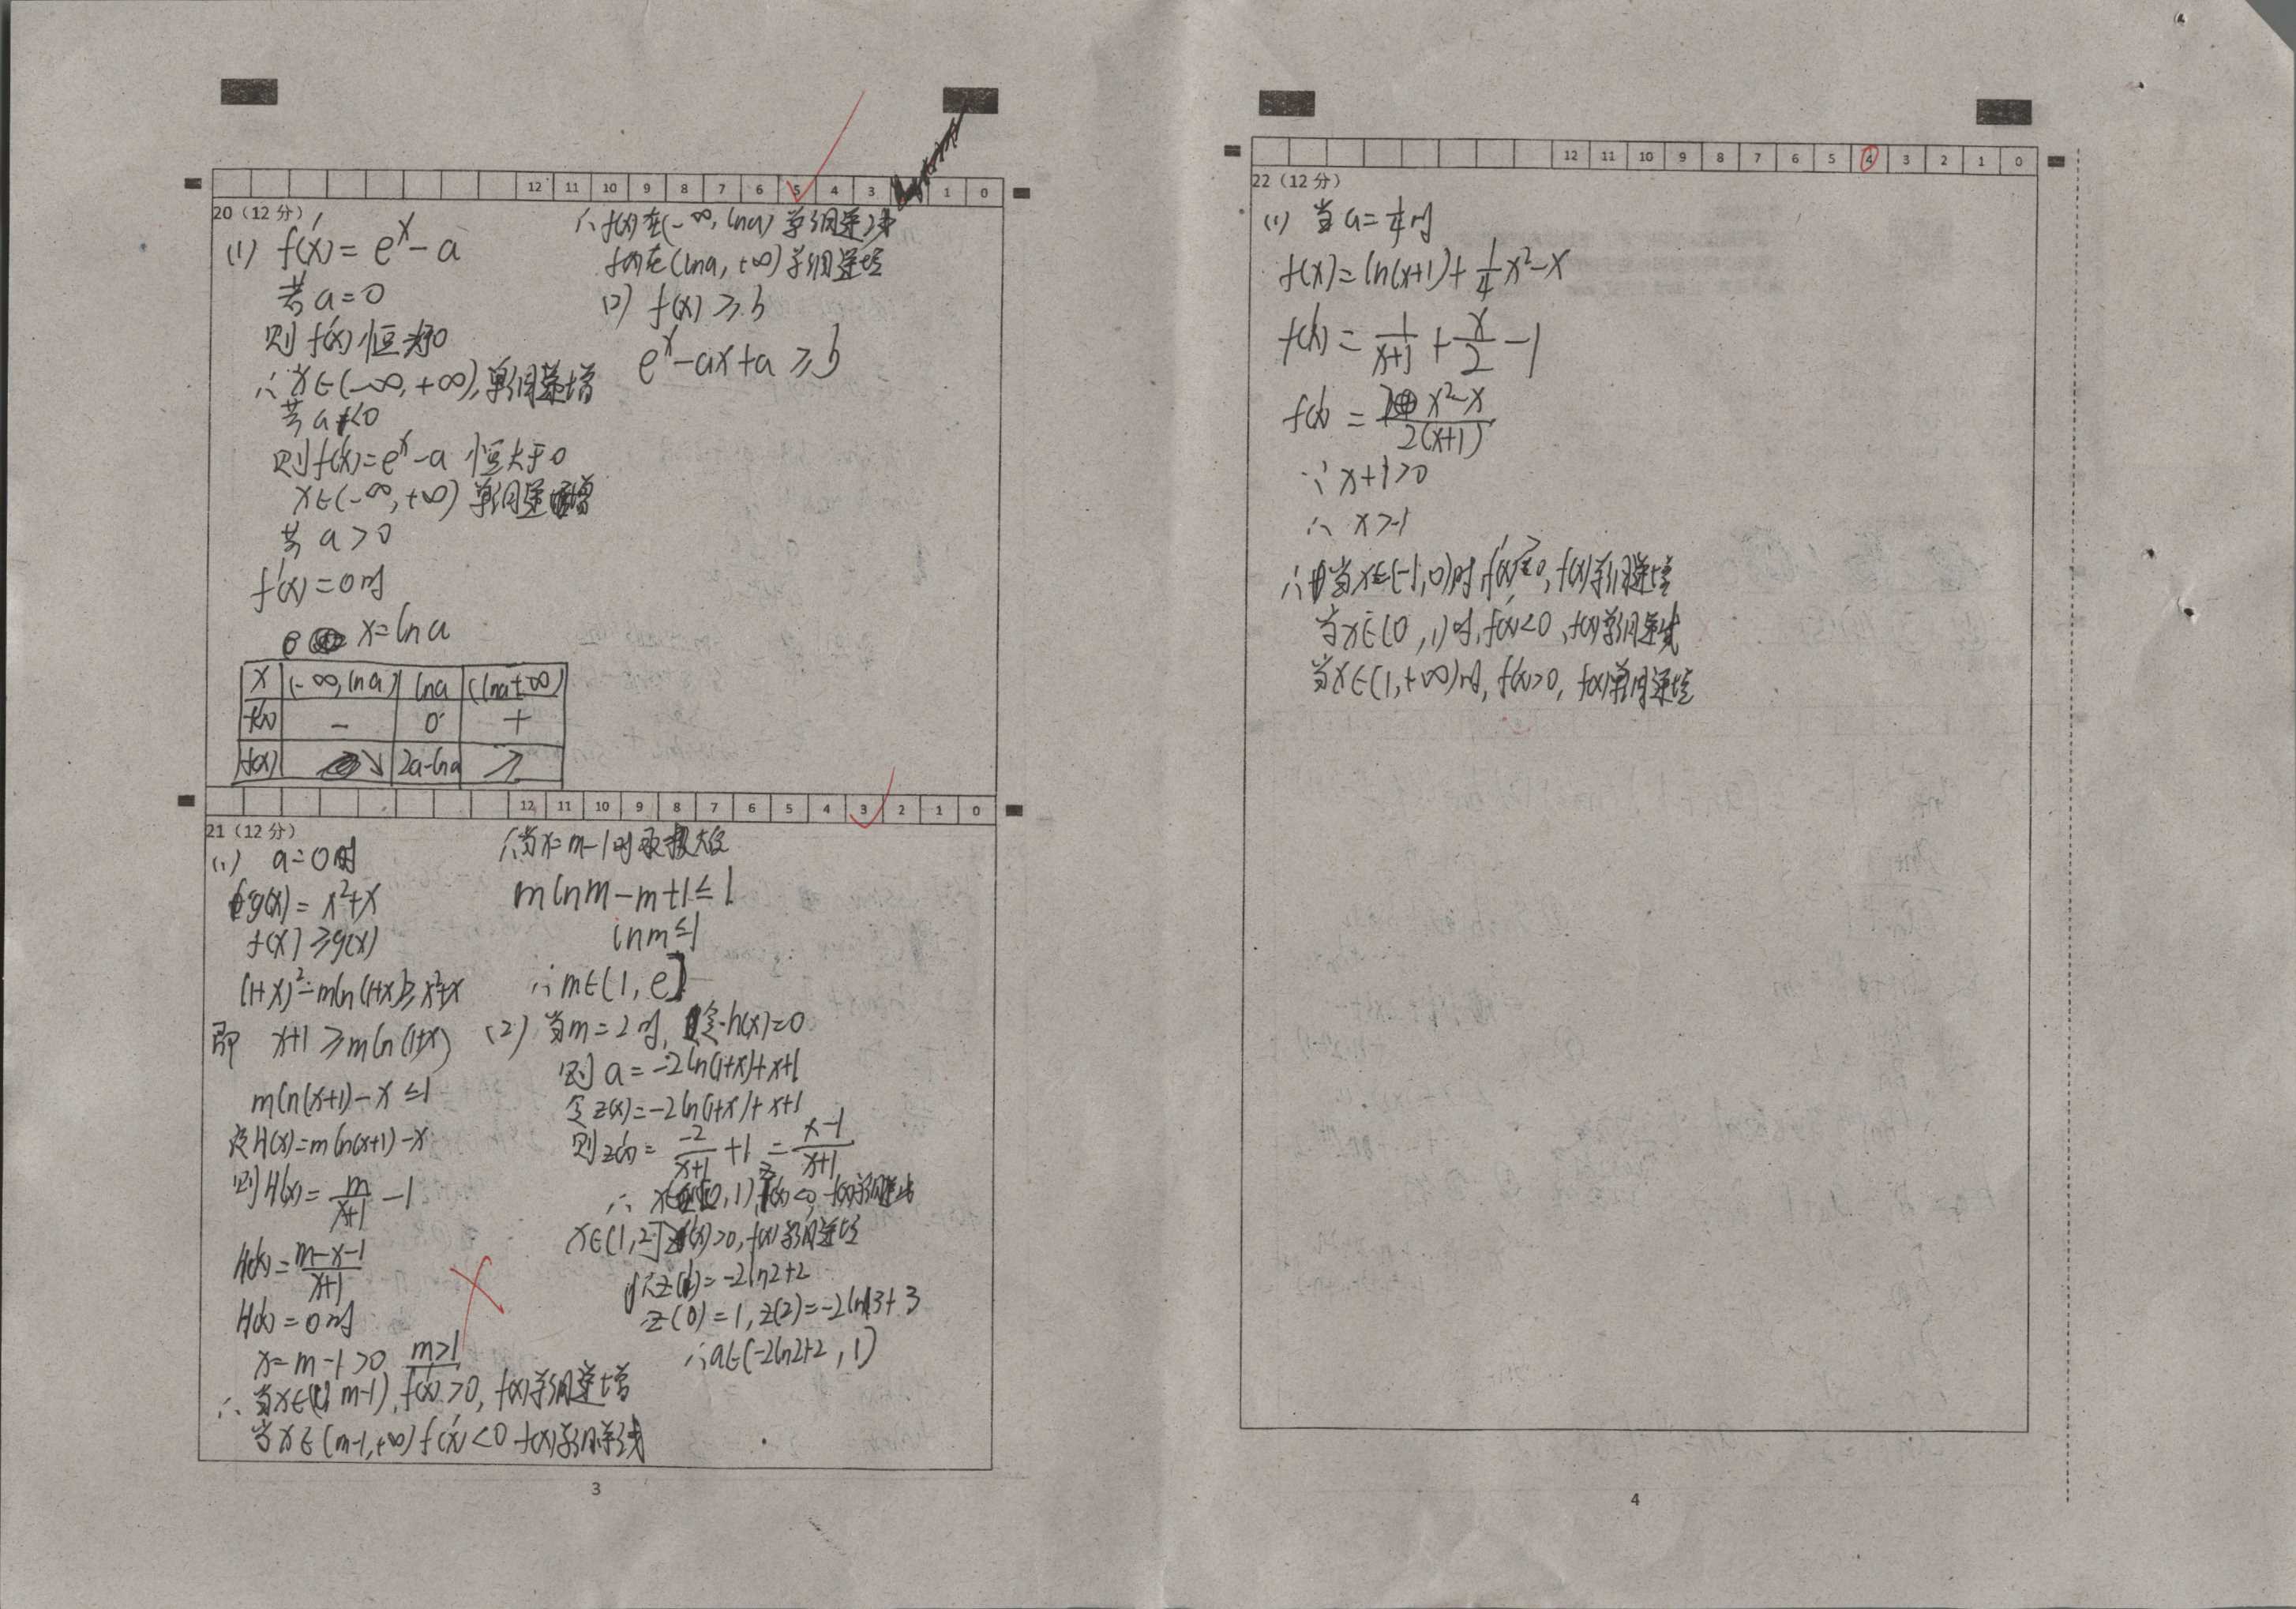 12 11 10 9 8 7 6 5 4 3 1 0
20（12 分）
(1) f'(x) = e^x - a
若 a = 0
则 f'(x) 恒 >0
∴ x∈(-∞, +∞), 单调递增
若 a < 0
则 f'(x) = e^x - a 恒大于0
x∈(-∞, +∞) 单调递增
若 a > 0
f'(x) = 0时
x = ln a
x (-∞, ln a) ln a (ln a +∞)
f'(x) - 0 +
f(x) ↘ 2a-ln a ↗
∴ f(x)在(-∞, ln a) 单调递减
f(x)在(ln a, +∞) 单调递增
(2) f(x) ≥ b
e^x - ax + a ≥ b
12 11 10 9 8 7 6 5 4 3 2 1 0
21（12 分）
(1) a = 0时
g(x) = x²+x
f(x) ≥ g(x)
(1+x)² - mln(1+x) ≥ x²+x
即 x+1 ≥ mln(1+x)
mln(x+1) - x ≤ 1
设H(x) = mln(x+1) - x
则H'(x) = m/(x+1) - 1
H'(x) = (m-x-1)/(x+1)
H'(x) = 0时
x = m-1 > 0 m>1
∴ 当x∈(0, m-1), f'(x) > 0, f(x)单调递增
当x∈(m-1, +∞) f'(x) < 0 f(x)单调递减
∴当x = m-1时取极大值
mlnm - m + 1 ≤ 1
lnm ≤ 1
∴ m∈(1, e]
(2) 当m = 2时, 令h(x) = 0
则 a = -2ln(1+x) + x+1
令z(x) = -2ln(1+x) + x+1
则z'(x) = -2/(x+1) + 1 = (x-1)/(x+1)
∴ x∈[0, 1), z'(x) < 0, f(x)单调递减
x∈(1, 2] z'(x) > 0, f(x)单调递增
∴z(1) = -2ln2+2
z(0) = 1, z(2) = -2ln3 + 3
∴a∈(-2ln2+2, 1)
3
12 11 10 9 8 7 6 5 4 3 2 1 0
22（12 分）
(1) 当 a = 1/4时
f(x) = ln(x+1) + 1/4 x² - x
f'(x) = 1/(x+1) + x/2 - 1
f'(x) = (x²-x)/(2(x+1))
∵ x+1 > 0
∴ x > -1
∴ 当x∈(-1, 0)时 f'(x)>0, f(x)单调递增
当x∈(0, 1)时, f'(x)<0, f(x)单调递减
当x∈(1, +∞)时, f'(x)>0, f(x)单调递增
4